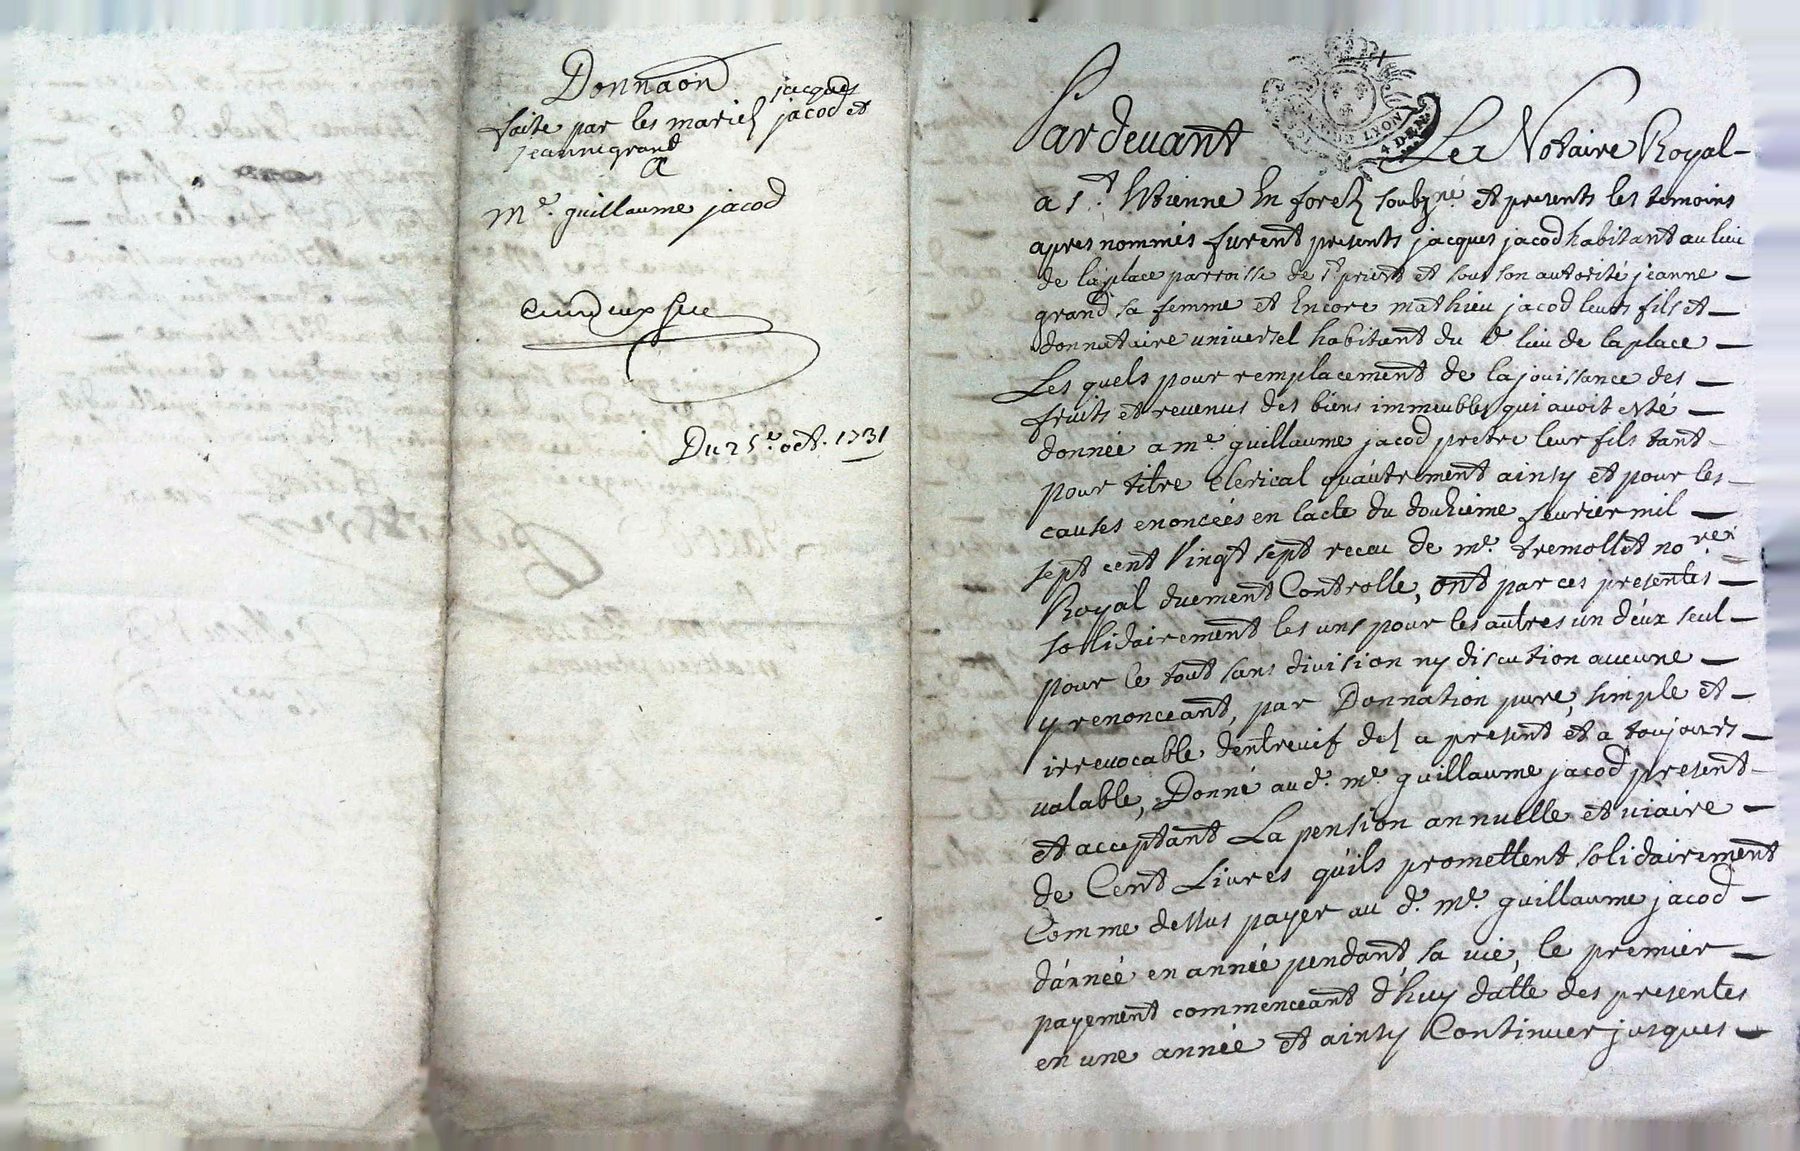 Donnaon
faite par les mariez jacques jacod et
jeanne grand
A
Me. guillaume jacod
Du 25e. oct. 1731
GEN. DE LYON
4 DEN.
Pardevant Le Notaire Royal
a St. Etienne En forez soubzné. et presents les temoins
apres nommés furent presents jacques jacod habitant au lieu
de la place parroisse de st priest et sous son autorité jeanne
grand sa femme et Encore mathieu jacod leurs fils et
donnataire universel habitant du d lieu de la place
Les quels pour remplacement de la jouissance des
fruits et revenus des biens immeubles qui avoit esté
donnée a me guillaume jacod pretre leur fils tant
pour titre Clerical qu'autrement ainsy et pour les
causes enoncées en lacte du douzieme fevrier mil
sept cent Vingt sept receu de me. tremollet nore
Royal duement Controlle, ont par ces presentes
solidairement les uns pour les autres un d'eux seul
pour le tout sans division ny discution aucune
y renonceant, par Donnation pure, simple et
irrevocable d'entrevif dez a present et a toujours
valable, Donné aud. me guillaume jacod present
et acceptant La pension annuelle et viaire
de Cent Livres qu'ils promettent solidairement
Comme dessus payer au d. me. guillaume jacod
d'année en année pendant sa vie, le premier
payement commenceant d'huy datte des presentes
en une année et ainsy Continuer jusques